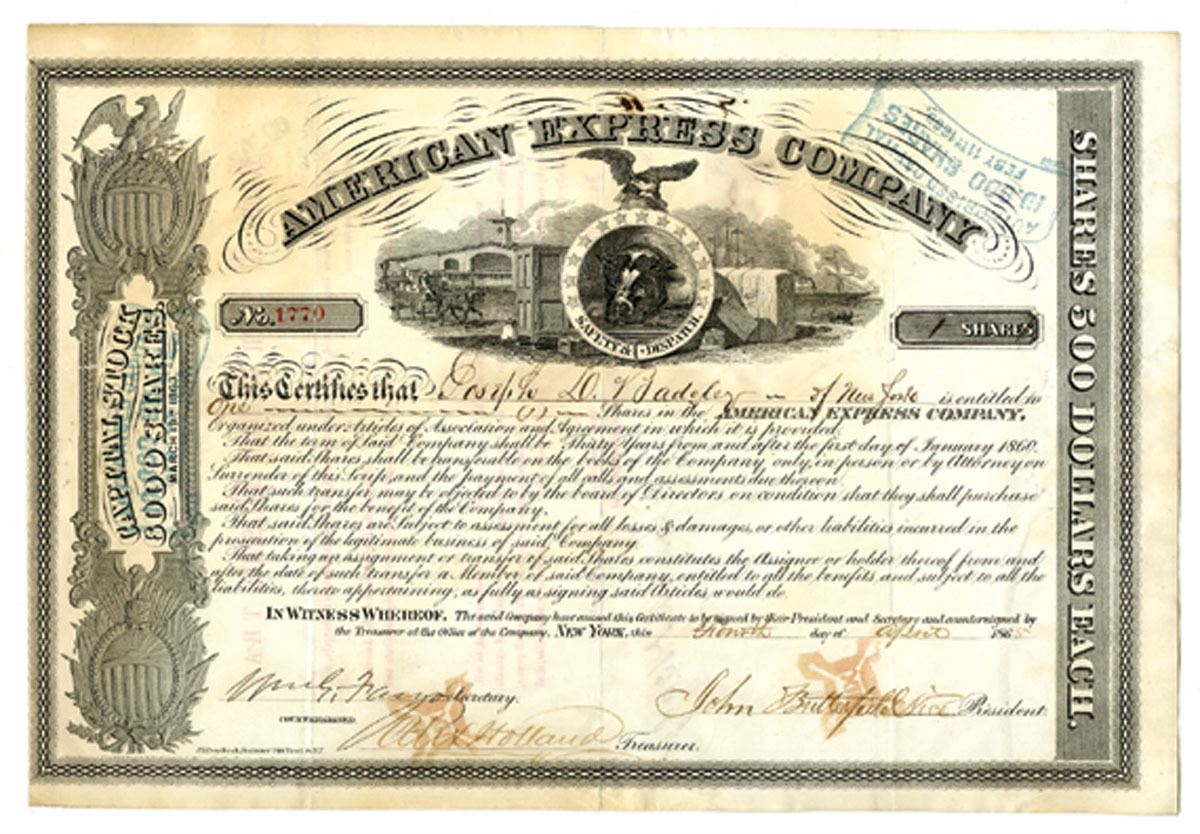 AMERICAN EXPRESS COMPANY
SAFETY & DISPATCH
No. 1770
1 SHARES
CAPITAL STOCK
80000 SHARES
MARCH 19TH 1863
SHARES 500 DOLLARS EACH.
FEBY 11TH 1865
This Certifies that Joseph D. Badeley of New York is entitled to
One (1) Shares in the AMERICAN EXPRESS COMPANY.
Organized under Articles of Association and Agreement in which it is provided,
That the term of said Company shall be Thirty Years from and after the first day of January 1860.
That said Shares shall be transferable on the books of the Company only, in person or by Attorney on
Surrender of this Scrip, and the payment of all calls and assessments due thereon.
That such transfer may be objected to by the board of Directors on condition that they shall purchase
said Shares for the benefit of the Company.
That said Shares are Subject to assessment for all losses & damages, or other liabilities incurred in the
prosecution of the legitimate business of said Company.
That taking an assignment or transfer of said Shares constitutes the Assignee or holder thereof from and
after the date of such transfer a Member of said Company, entitled to all the benefits, and subject to all the
liabilities, thereto appertaining, as fully as signing said Articles would do.
IN WITNESS WHEREOF. The said Company have caused this Certificate to be signed by their President and Secretary and countersigned by
the Treasurer at the Office of the Company, NEW YORK, this day of April 1865
Wm G. Fargo Secretary.
John Butterfield Vice President.
COUNTERSIGNED.
Holland Treasurer.